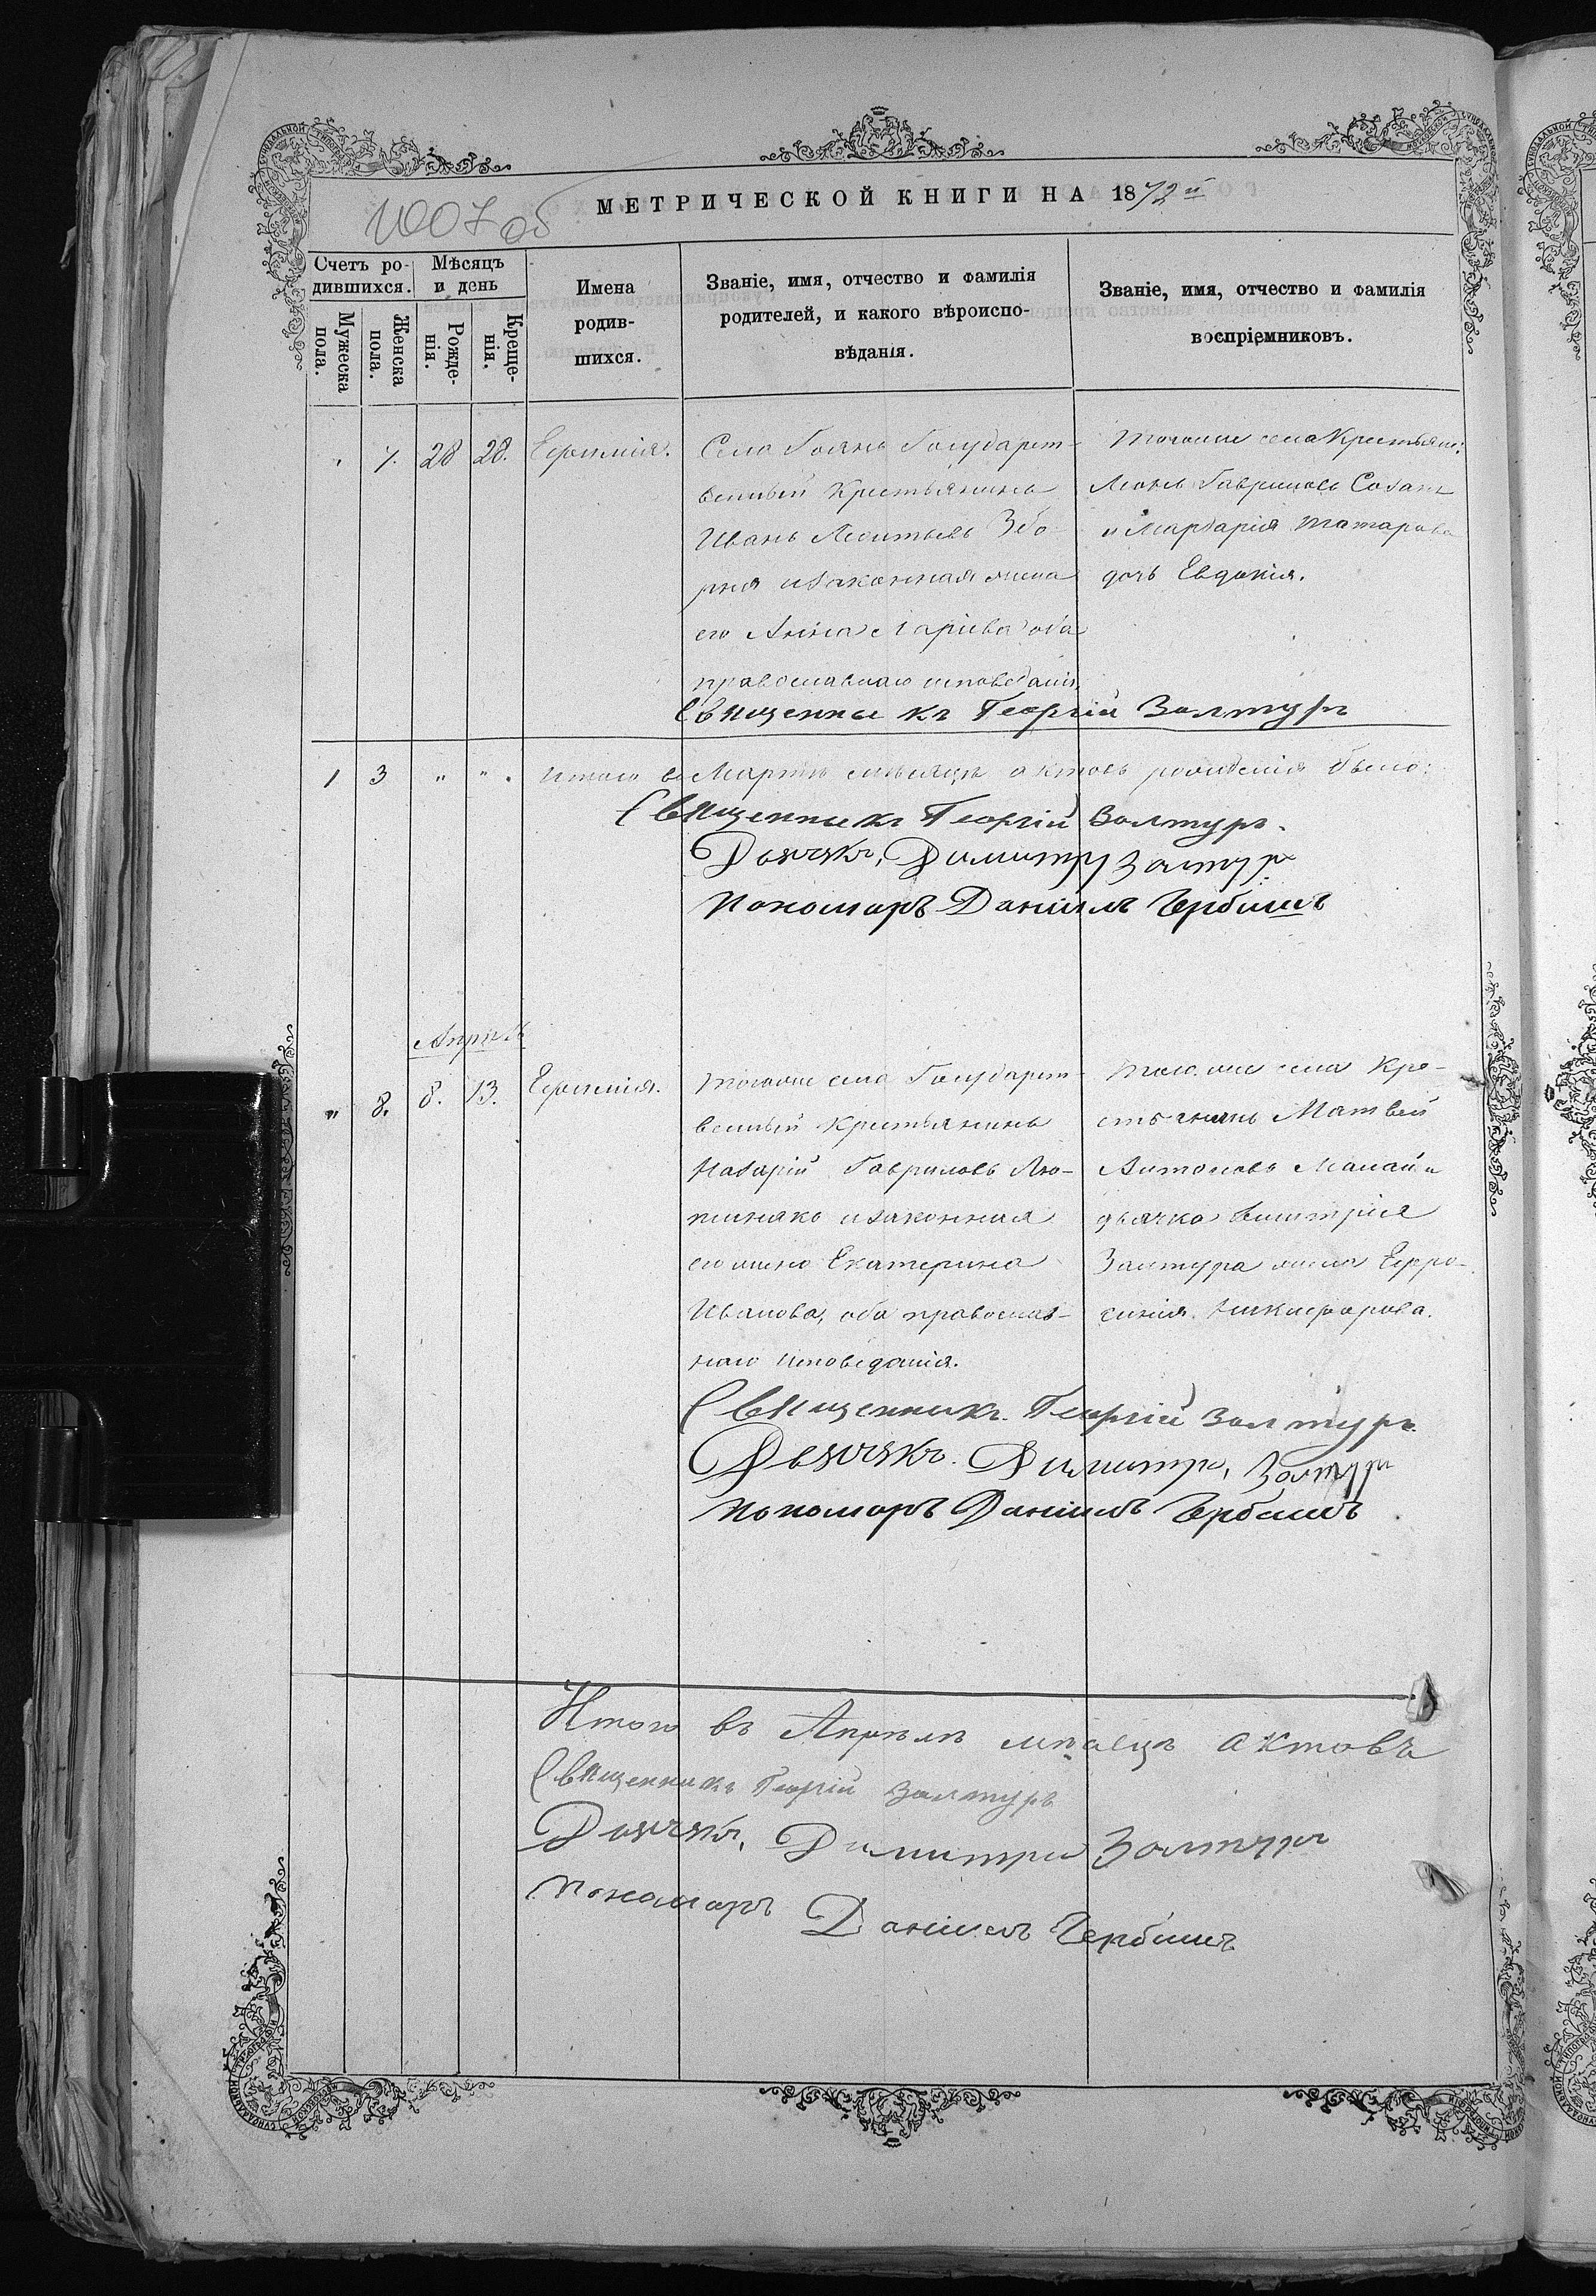 МЕТРИЧЕСКОЙ КНИГИ НА 1872й
1007 об
Счетъ ро-
дившихся.
Мѣсяцъ
и день
Мужеска
пола.
Женска
пола.
Рожде-
нія.
Креще-
нія.
Имена
родив-
шихся.
Званіе, имя, отчество и фамилія
родителей, и какого вѣроиспо-
вѣданія.
Званіе, имя, отчество и фамилія
воспріемниковъ.
" 7. 28 28. Ефимія.
Села Гоянъ Государст-
венный Крестьянинъ
Иванъ Леонтьевъ Збо-
рня и законная жена
его Анна оба
православнаго исповѣданія,
Тогоже села Крестьяне:
Гавриловъ
и
дочь Евдокія.
Священникъ Георгій Залтуръ
1 3 " " Итого въ Мартѣ мѣсяцѣ актовъ рожденія было:
Священникъ Георгій Залтуръ.
Дьячокъ, Димитру Залтуръ
Пономаръ Даніилъ Чербишъ
Апрѣль
" 8. 8. 13. Ефимія.
Тогоже села Государст-
венный Крестьянинъ
Назарій Гавриловъ
и законная
его жена Екатерина
Иванова, оба православ-
наго исповѣданія.
Тогоже села Кре-
стьянинъ Матвей
Антоновъ Малай и
дьячка Димитрія
Залтура жена Ефро-
синія Никифорова.
Священникъ Георгій Залтуръ.
Дьячокъ. Димитри, Залтуръ
Пономаръ Даніилъ Чербишъ.
Итого въ Апрѣлѣ мѣсяцѣ актовъ
Священникъ Георгій Залтуръ
Дьячокъ, Димитри Залтуръ
Пономаръ Даніилъ Чербишъ